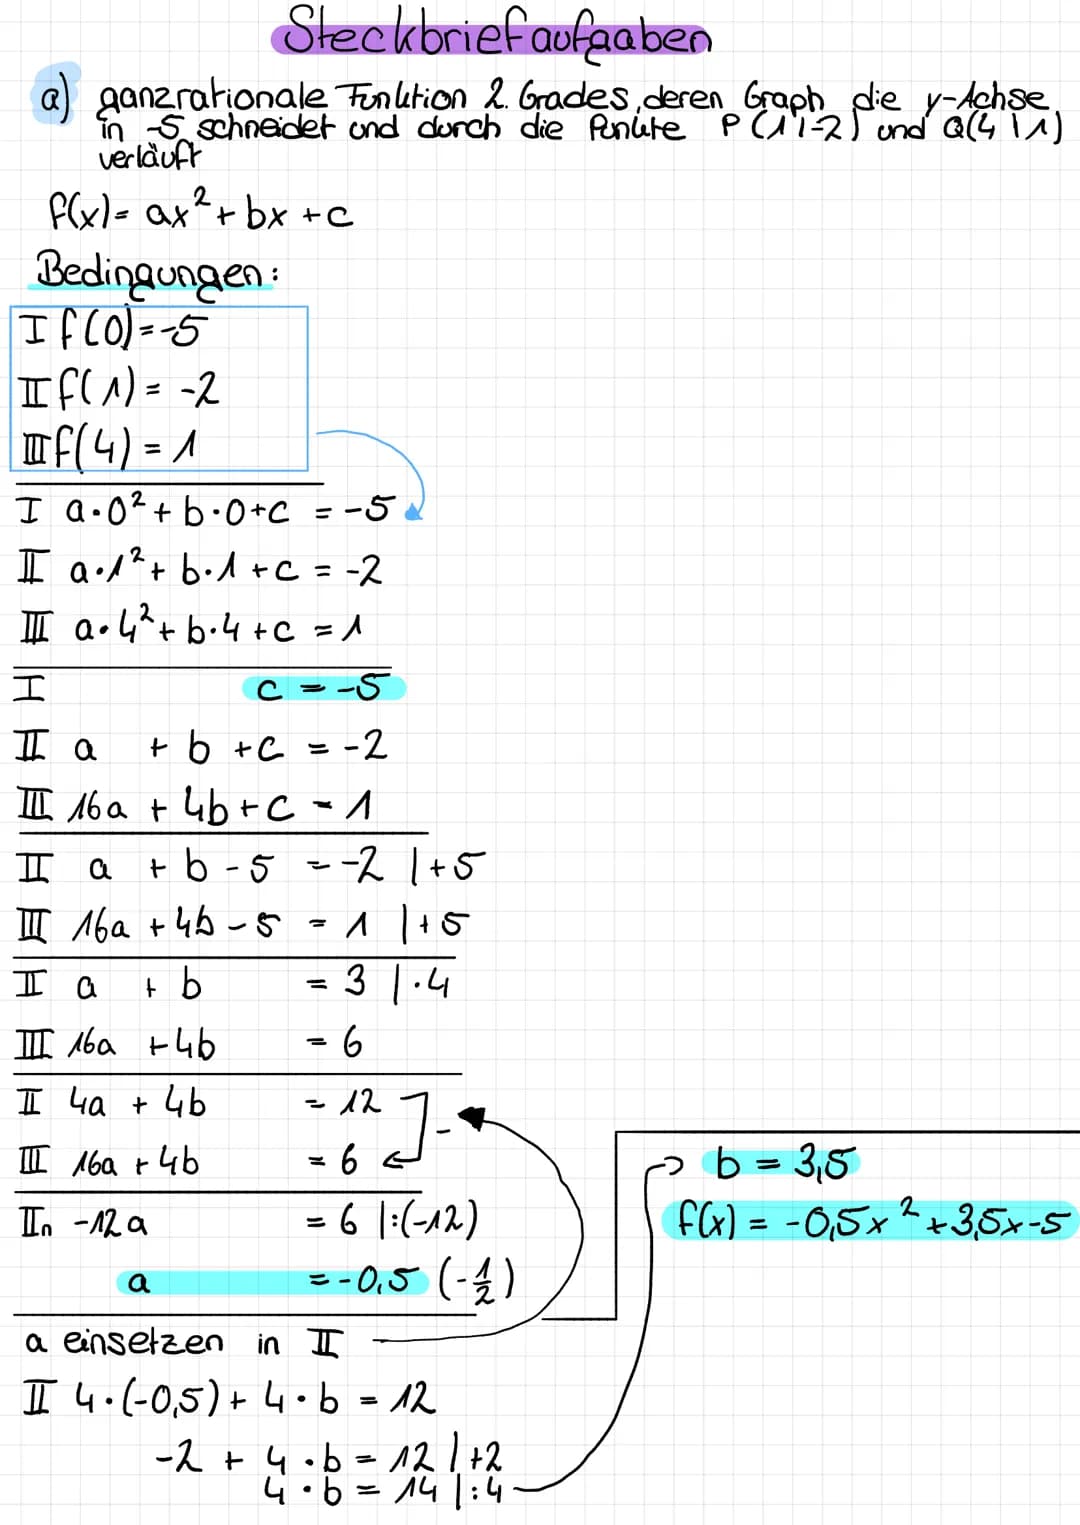 Steckbriefaufgaben
a) ganzrationale Funktion 2. Grades, deren Graph die y-Achse
in -5 schneidet und durch die Punkte P(1|-2) und Q(4|1)
verläuft
f(x) = ax² + bx + c
Bedingungen:
I f(0) = -5
II f(1) = -2
III f(4) = 1
I a·0² + b·0 + c = -5
II a·1² + b·1 + c = -2
III a·4² + b·4 + c = 1
I c = -5
II a + b + c = -2
III 16a + 4b + c = 1
II a + b - 5 = -2 |+5
III 16a + 4b - 5 = 1 |+5
II a + b = 3 |·4
III 16a + 4b = 6
II 4a + 4b = 12
III 16a + 4b = 6
-
IIn -12a = 6 |:(-12)
a = -0,5 (-1/2)
a einsetzen in II
II 4·(-0,5) + 4·b = 12
-2 + 4·b = 12 |+2
4·b = 14 |:4
b = 3,5
f(x) = -0,5x² + 3,5x - 5